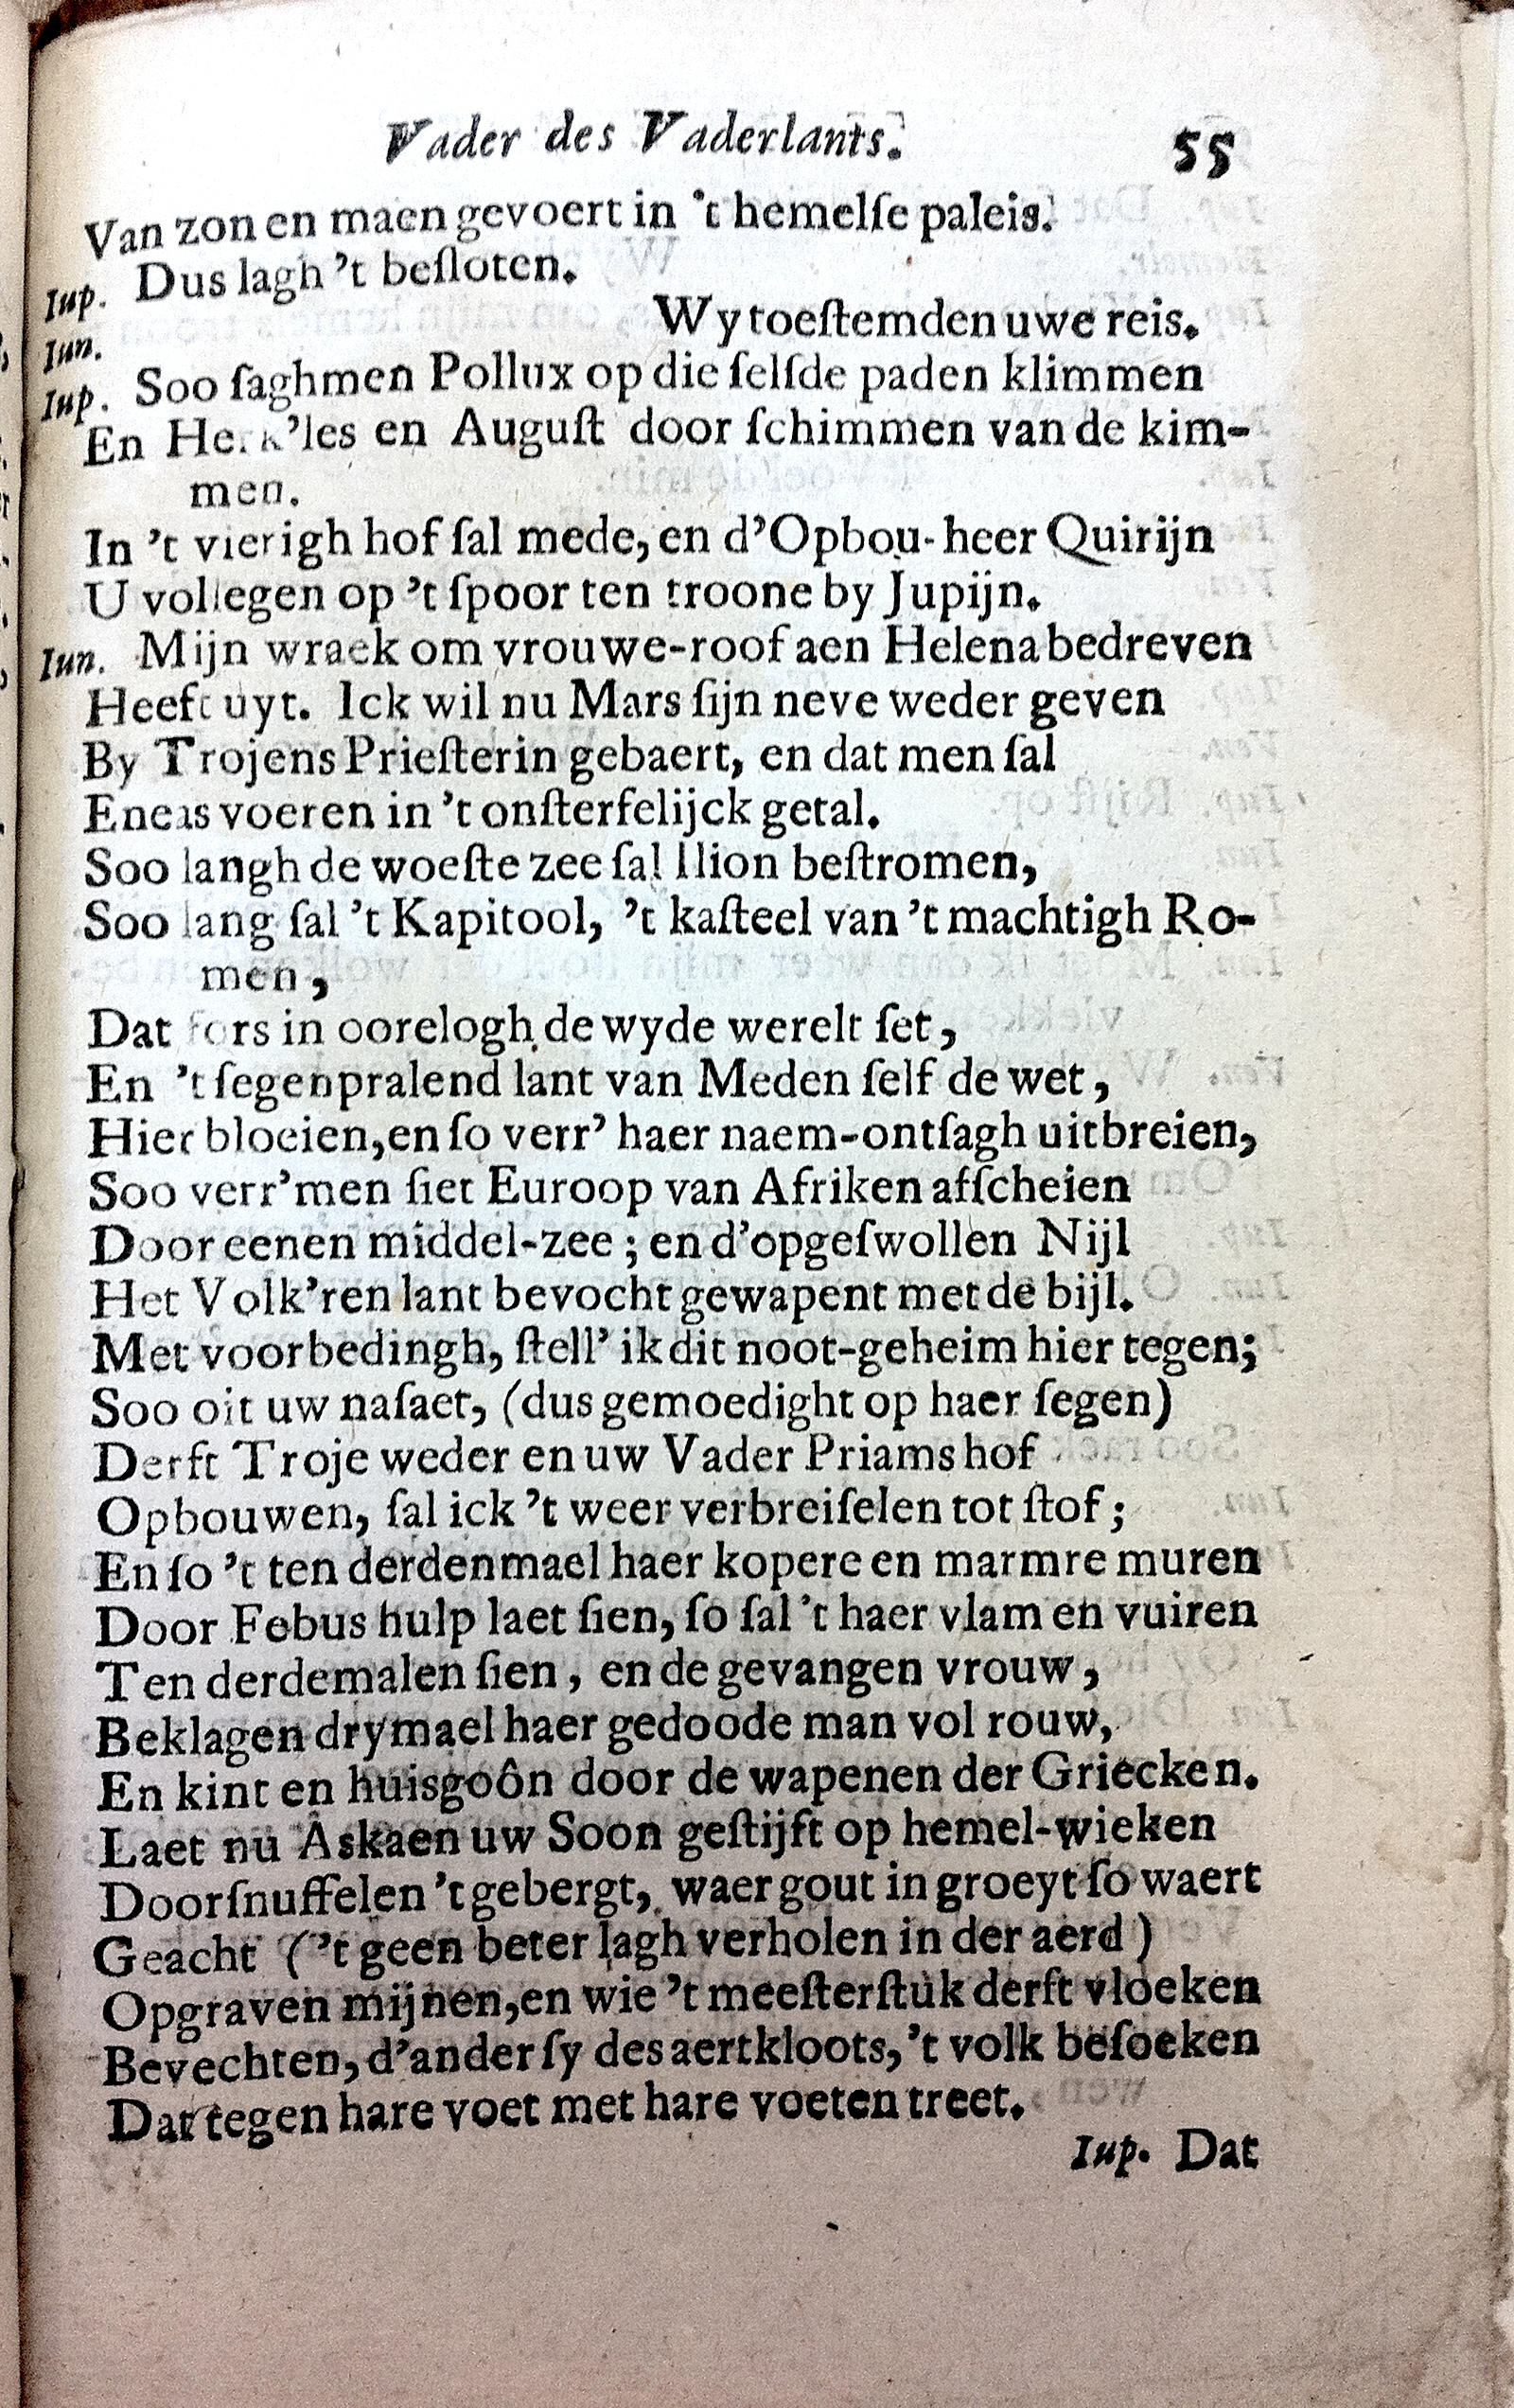 Vader des Vaderlants. 55
Van zon en maen gevoert in 't hemelſe paleis.
Iup. Dus lagh 't beſloten.
Iun. Wy toeſtemden uwe reis.
Iup. Soo ſaghmen Pollux op die ſelfde paden klimmen
En Herk'les en Auguſt door ſchimmen van de kim-
men.
In 't vierigh hof ſal mede, en d'Opbou-heer Quirijn
U vollegen op 't ſpoor ten troone by Jupijn.
Iun. Mijn wraek om vrouwe-roof aen Helena bedreven
Heeft uyt. Ick wil nu Mars ſijn neve weder geven
By Trojens Prieſterin gebaert, en dat men ſal
Eneas voeren in 't onſterfelijck getal.
Soo langh de woeſte zee ſal Ilion beſtromen,
Soo lang ſal 't Kapitool, 't kaſteel van 't machtigh Ro-
men,
Dat fors in oorelogh de wyde werelt ſet,
En 't ſegenpralend lant van Meden ſelf de wet,
Hier bloeien, en ſo verr' haer naem-ontſagh uitbreien,
Soo verr' men ſiet Euroop van Afriken afſcheien
Door eenen middel-zee; en d'opgeſwollen Nijl
Het Volk'ren lant bevocht gewapent met de bijl.
Met voorbedingh, ſtell' ik dit noot-geheim hier tegen;
Soo oit uw naſaet, (dus gemoedight op haer ſegen)
Derft Troje weder en uw Vader Priams hof
Opbouwen, ſal ick 't weer verbreiſelen tot ſtof;
En ſo 't ten derdenmael haer kopere en marmre muren
Door Febus hulp laet ſien, ſo ſal 't haer vlam en vuiren
Ten derdemalen ſien, en de gevangen vrouw,
Beklagen drymael haer gedoode man vol rouw,
En kint en huisgoôn door de wapenen der Griecken.
Laet nu Askaen uw Soon geſtijft op hemel-wieken
Doorſnuffelen 't gebergt, waer gout in groeyt ſo waert
Geacht ('t geen beter lagh verholen in der aerd)
Opgraven mijnen, en wie 't meeſterſtuk derft vloeken
Bevechten, d'ander ſy des aertkloots, 't volk beſoeken
Dat tegen hare voet met hare voeten treet.
Iup. Dat